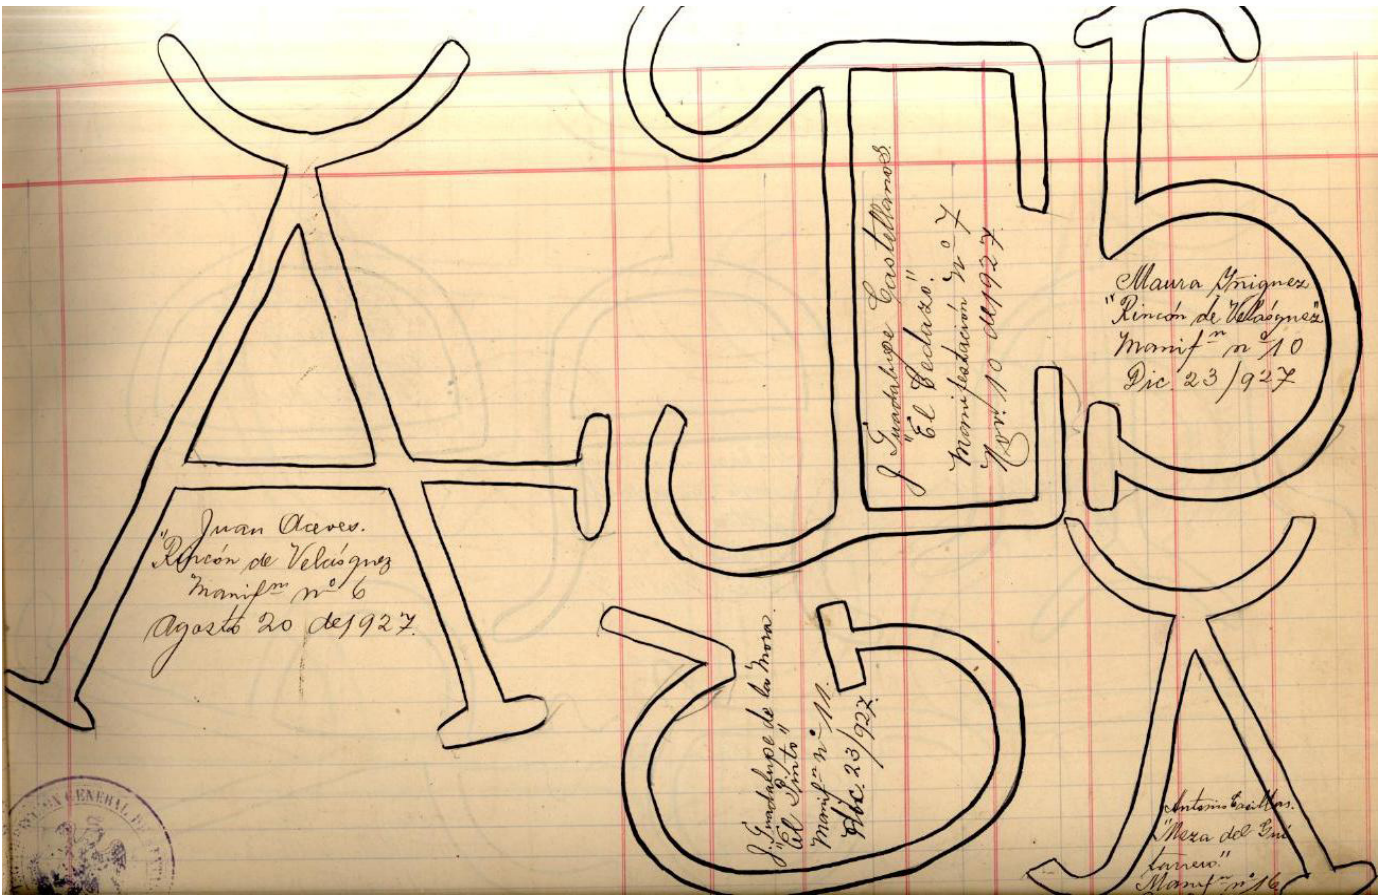 Juan Aceves.
"Rincón de Velásquez
Manif.ⁿ nº 6
Agosto 20 de 1927.
J. Guadalupe Castellanos.
"El Cedazo."
Manifestación Nº 7
Nov. 10 de 1927
Maura Yñiguez
"Rincón de Velásquez"
Manif.ⁿ nº 10
Dic. 23/927
J. Guadalupe de la Mora.
"El Pinto"
Manif.ⁿ nº 11.
Dic. 23/927.
Antonio Casillas.
"Meza del Gui
tarrero."
Manif.ⁿ nº 16
GENERAL DE